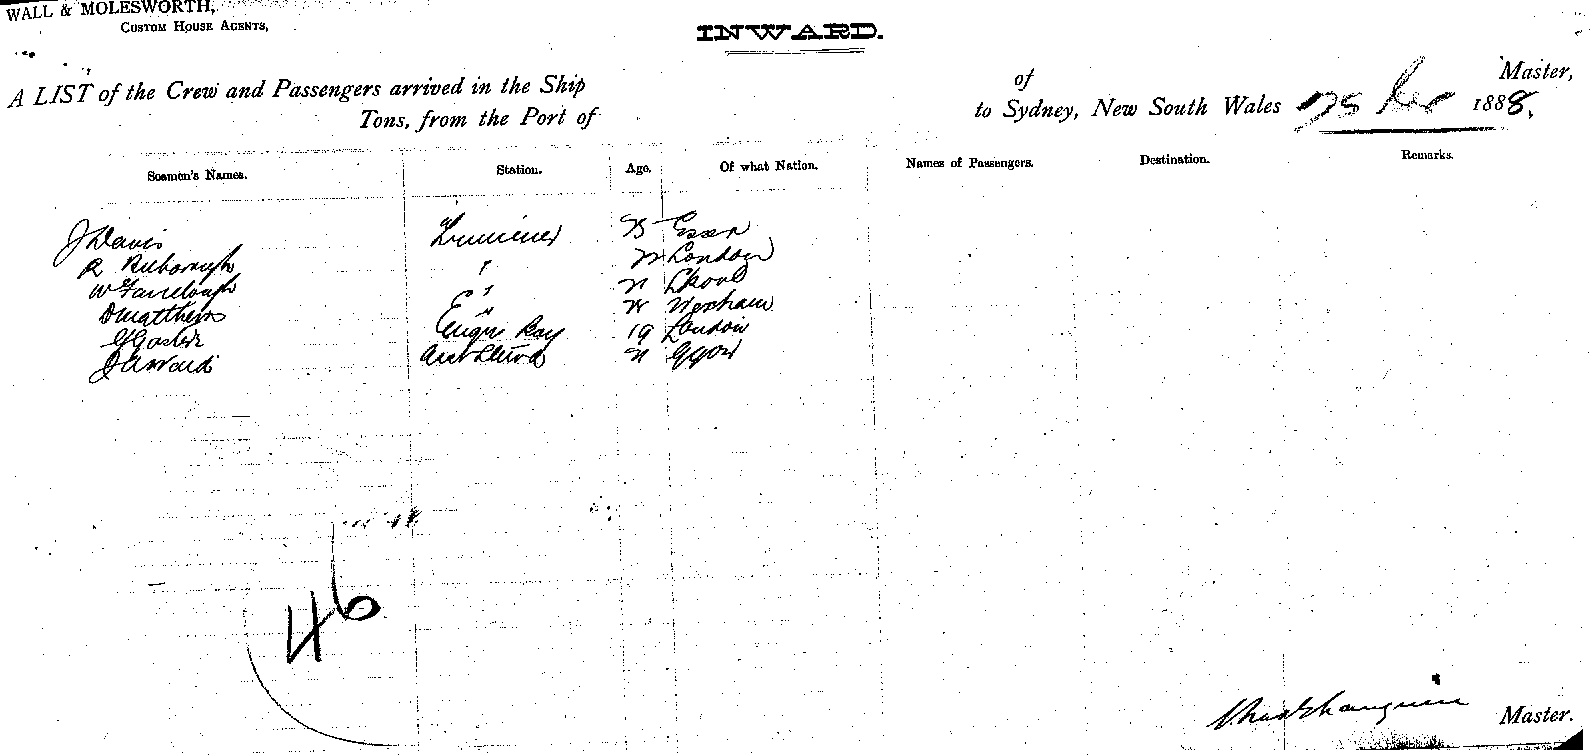 WALL & MOLESWORTH,
CUSTOM HOUSE AGENTS,
INWARD.
A LIST of the Crew and Passengers arrived in the Ship of Master,
Tons, from the Port of to Sydney, New South Wales Dec 1888,
Seamen's Names. Station. Age. Of what Nation. Names of Passengers. Destination. Remarks.
J Davis Trimmer Essex
R " London
W Fairclough " L'pool
D Matthews " Wrexham
G 19 London
J Ward G'gow
46
Master.